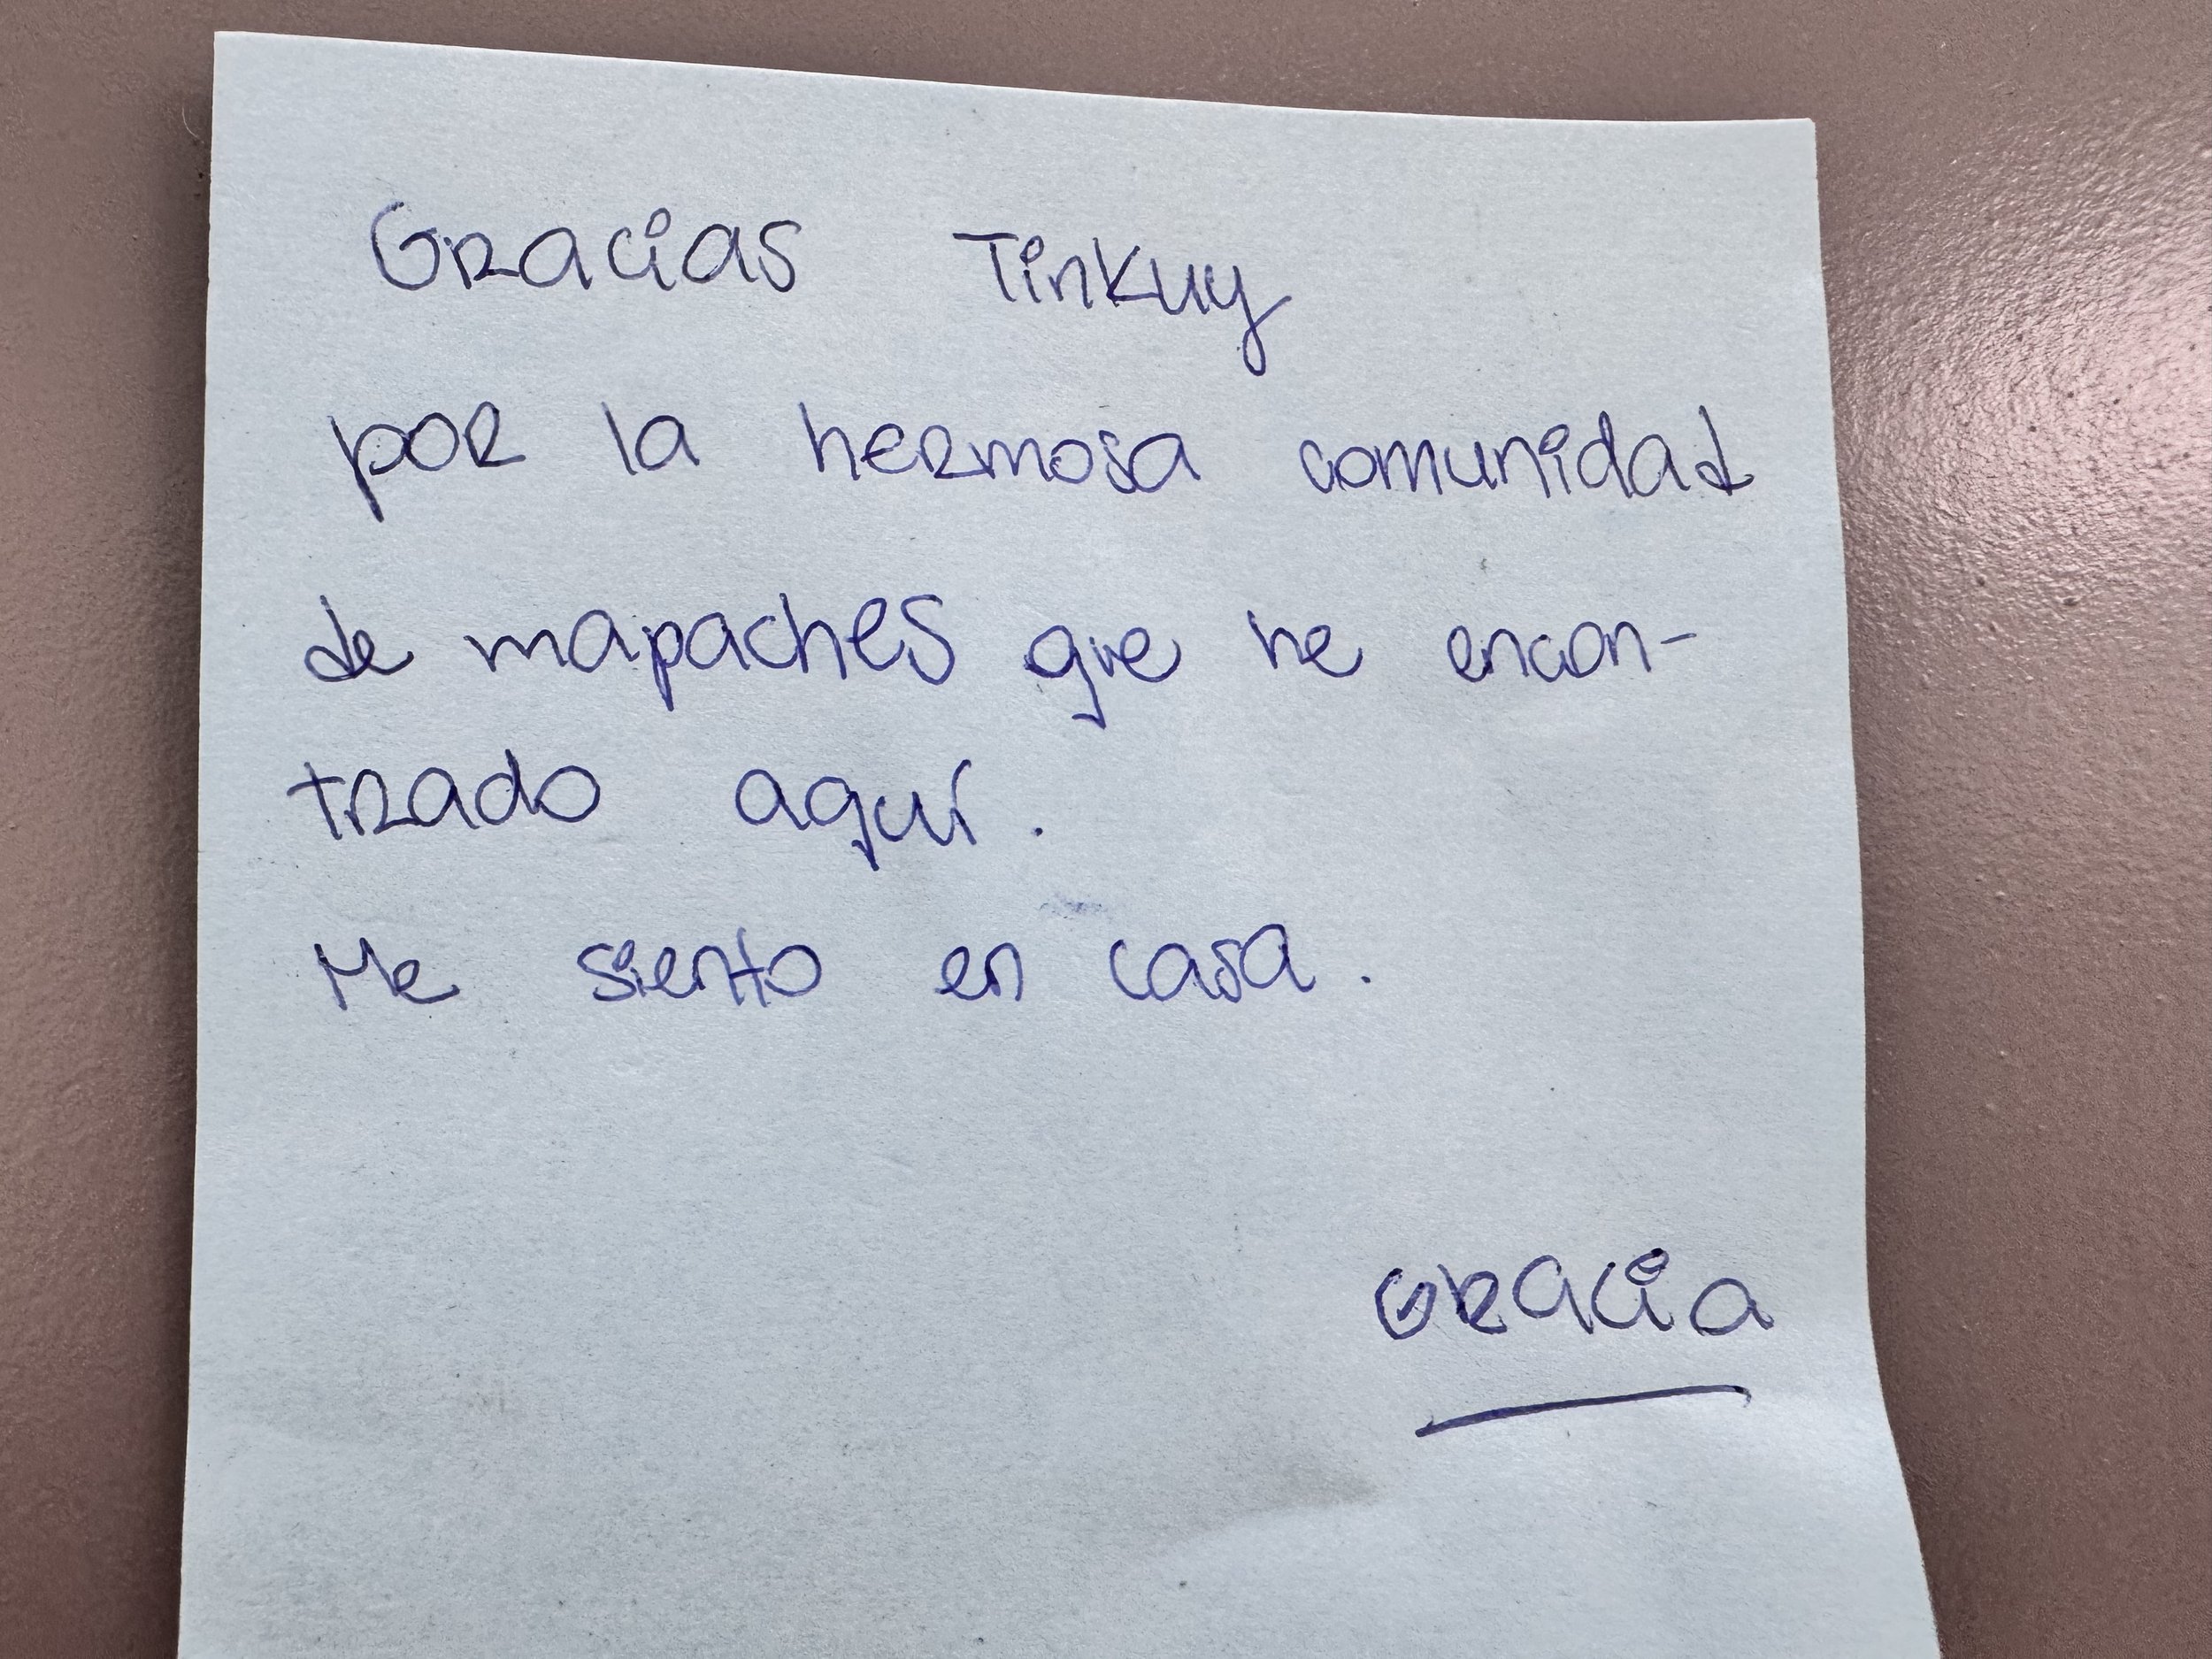 Gracias Tinkuy
por la hermosa comunidad
de mapaches que he encon-
trado aquí.
Me siento en casa.
Gracia